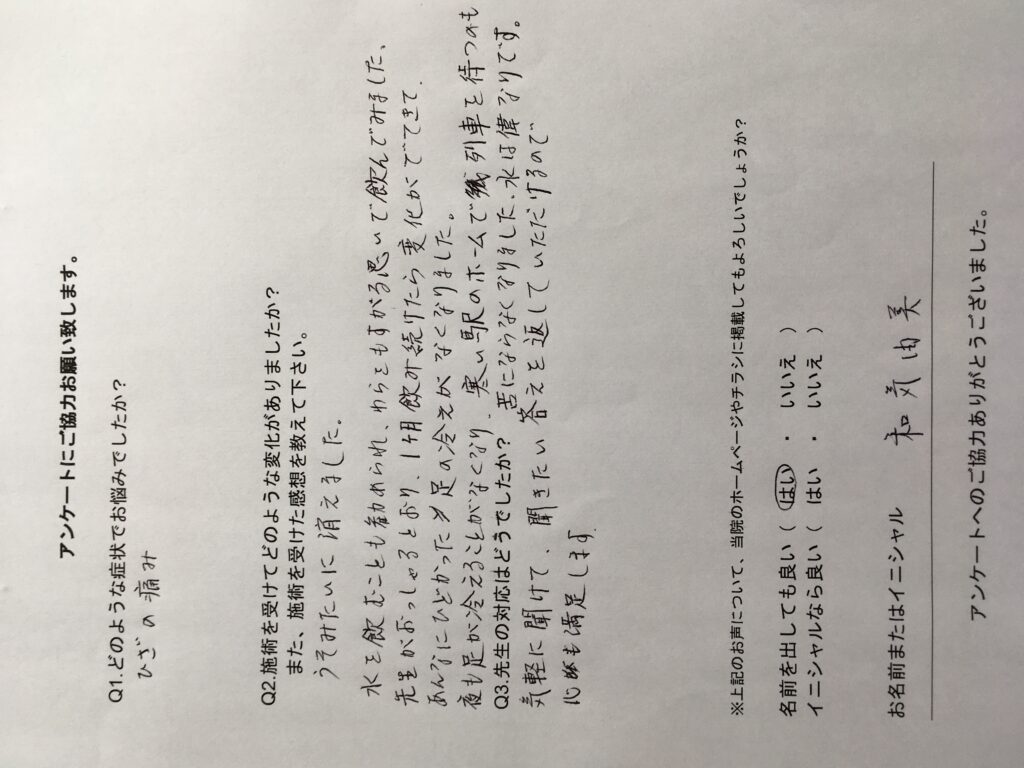 アンケートにご協力お願い致します。
Q1.どのような症状でお悩みでしたか?
ひざの痛み
Q2.施術を受けてどのような変化がありましたか?
また、施術を受けた感想を教えて下さい。
うそみたいに消えました。
水を飲むことも勧められ、わらをもすがる思いで飲んでみました、
先生がおっしゃるとおり、1ヶ月飲み続けたら変化がでてきて
あんなにひどかった足の冷えがなくなりました。
夜も足が冷えることがなくなり、寒い駅のホームで列車を待つのも
苦にならなくなりました、水は偉大なりです。
Q3.先生の対応はどうでしたか?
気軽に聞けて、聞きたい答えを返していただけるので
心も満足します
※上記のお声について、当院のホームページやチラシに掲載してもよろしいでしょうか?
名前を出しても良い( はい ・ いいえ )
イニシャルなら良い( はい ・ いいえ )
お名前またはイニシャル 和気由美
アンケートへのご協力ありがとうございました。